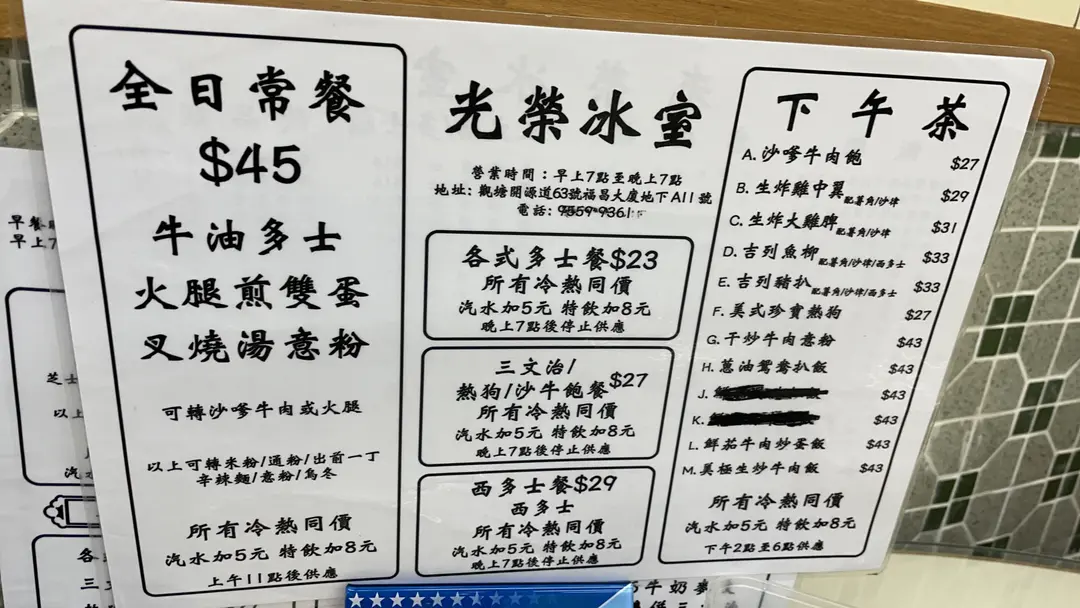 全日常餐
$45
牛油多士
火腿煎雙蛋
叉燒湯意粉
可轉沙嗲牛肉或火腿
以上可轉米粉/通粉/出前一丁
辛辣麵/意粉/烏冬
所有冷熱同價
汽水加5元 特飲加8元
上午11點後供應
光榮冰室
營業時間：早上7點至晚上7點
地址: 觀塘開源道63號福昌大廈地下A11號
電話:
各式多士餐$23
所有冷熱同價
汽水加5元 特飲加8元
晚上7點後停止供應
三文治/
熱狗/沙牛飽餐$27
所有冷熱同價
汽水加5元 特飲加8元
晚上7點後停止供應
西多士餐$29
西多士
所有冷熱同價
汽水加5元 特飲加8元
晚上7點後停止供應
下午茶
A. 沙嗲牛肉飽 $27
B. 生炸雞中翼配薯角/沙律 $29
C. 生炸大雞脾配薯角/沙律 $31
D. 吉列魚柳配薯角/沙律/西多士 $33
E. 吉列豬扒配薯角/沙律/西多士 $33
F. 美式珍寶熱狗 $27
G. 干炒牛肉意粉 $43
H. 蔥油鴛鴦扒飯 $43
J. $43
K. $43
L. 鮮茄牛肉炒蛋飯 $43
M. 美極生炒牛肉飯 $43
所有冷熱同價
汽水加5元 特飲加8元
下午2點至6點供應
早餐
早上7
芝士
以上
汽水
各
三文
牛奶麥